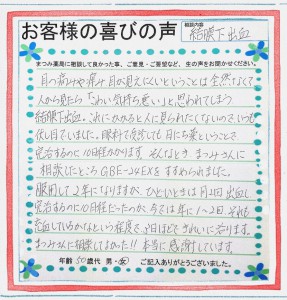 お客様の喜びの声
相談内容
結膜下出血
まつみ薬局に相談して良かった事、ご意見・ご要望など、生の声をお聞かせください。
目の痛みや痒み、目が見えにくいということは全然なくて
人から見たら「こわい、気持ち悪い」と思われてしまう
結膜下出血。これにかかると人に見られたくないのでいつも
伏し目でいました。眼科で治療しても目にち薬ということで
完治するのに10日程かかります。そんなとき まつみさんに
相談したところ GBE-24EXをすすめられました。
服用して2年になりますが、ひどいときは月2回出血し
完治するのに10日程だったのが、今では年に1~2回、それも
出血しているかなという程度で、2日ほどできれいに治ります。
まつみさんに相談してよかった!! 本当に感謝しています。
年齢 50歳代 男・女 ご記入ありがとうございました。